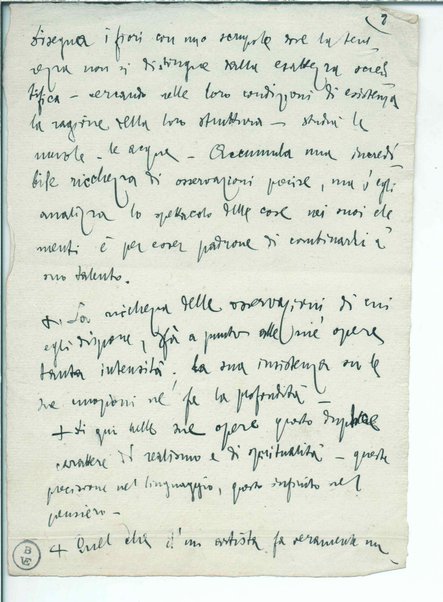 2
disegna i fiori con uno scrupolo ove la tene-
rezza non si distingue dalla esattezza scien
tifica – cercando nelle loro condizioni di esistenza
la ragione della loro struttura – studia le
nuvole – le acque – Accumula una incredi
bile ricchezza di osservazioni precise, ma s'egli
analizza lo spettacolo delle cose nei suoi ele
menti è per esser padrone di combinarli a
suo talento.
+ La ricchezza delle osservazioni di cui
egli dispone, dà a punto alle sue opere
tanta intensità. La sua insistenza su le
sue emozioni ne fa la profondità –
+ Di qui nelle sue opere questo duplice
carattere di realismo e di spiritualità – questa
precisione nel linguaggio, questo infinito nel
pensiero –
+ Quel che d'un artista fa veramente un
B
VE